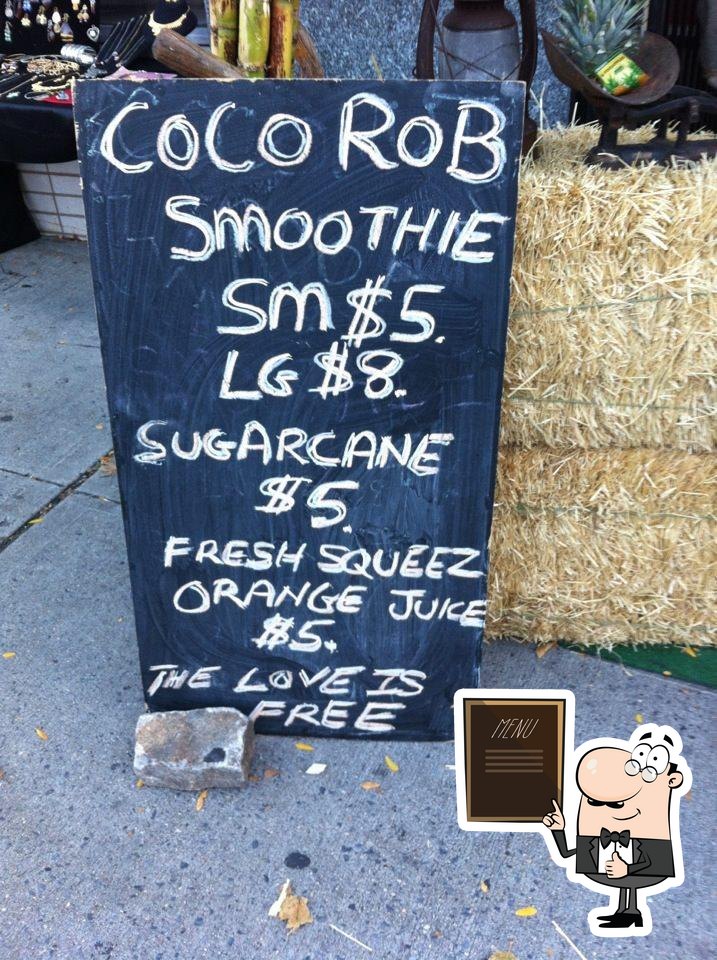 COCO ROB
SMOOTHIE
SM $5.
LG $8.
SUGARCANE
$5.
FRESH SQUEEZ
ORANGE JUICE
$5.
THE LOVE IS
FREE
MENU